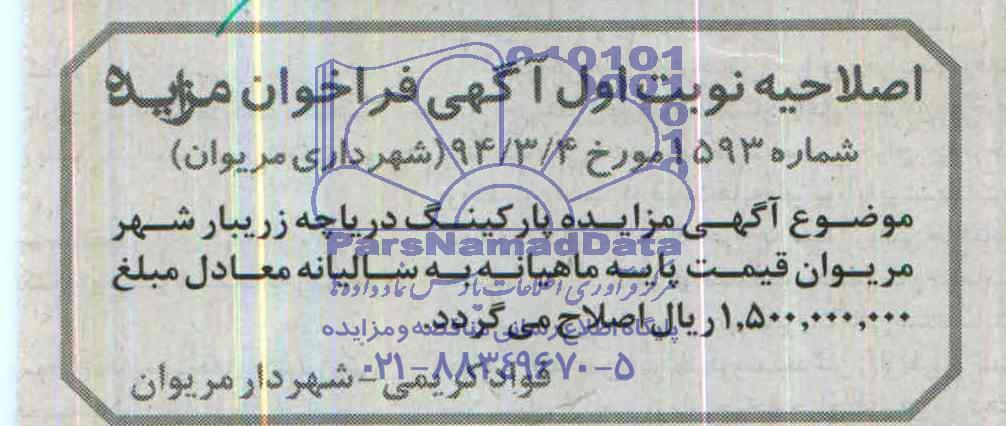 اصلاحیه نوبت اول آگهی فراخوان مزایده
شماره ۱۵۹۳ مورخ ۹۴/۳/۴ (شهرداری مریوان)
موضوع آگهی مزایده پارکینگ دریاچه زریبار شهر
مریوان قیمت پایه ماهیانه به سالیانه معادل مبلغ
۱,۵۰۰,۰۰۰,۰۰۰ ریال اصلاح می گردد.
فواد کریمی - شهردار مریوان
010101
ParsNamadData
پایگاه اطلاع رسانی مناقصه و مزایده
۰۲۱-۸۸۳۴۹۶۷۰-۵